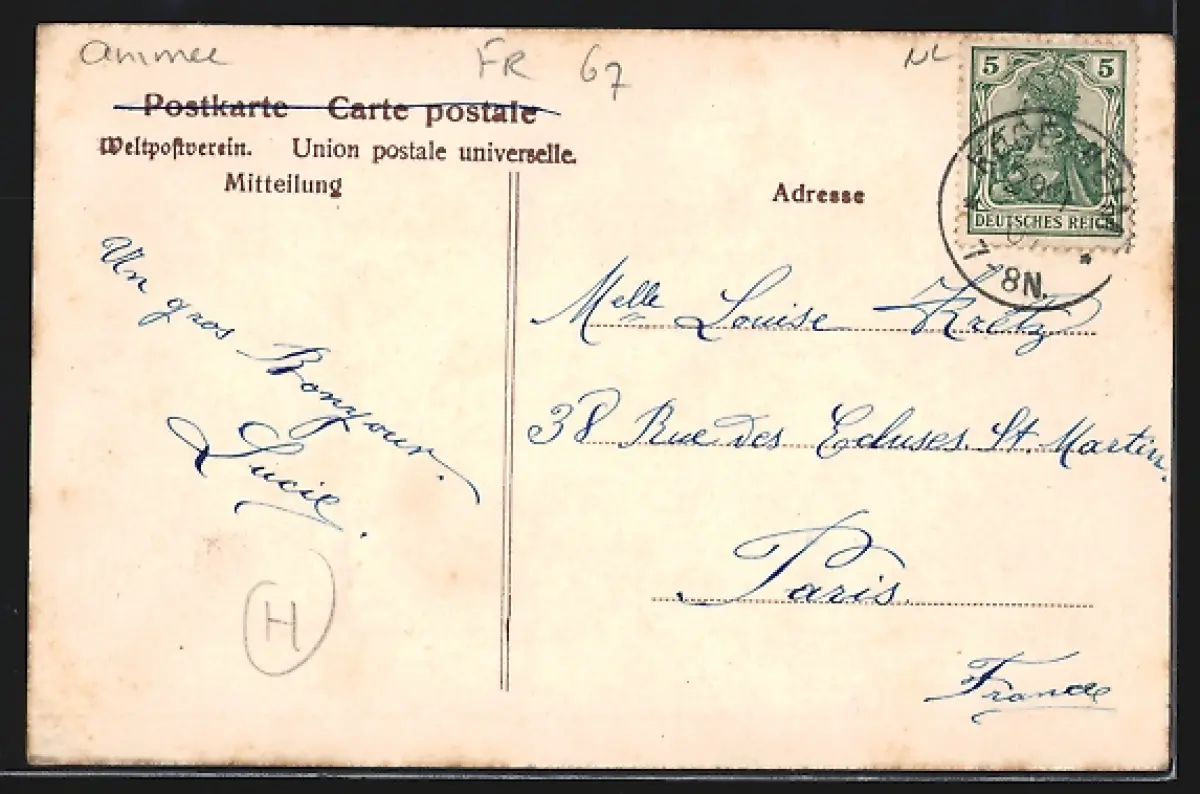 ammee FR 67 NL
Postkarte Carte postale
Weltpostverein. Union postale universelle.
Mitteilung
Adresse
5 5
DEUTSCHES REICH
7-8N.
Un gros Bonjour.
Lucie.
Melle Louise Kretz
38 Rue des Ecluses. St. Martin.
Paris.
France
H